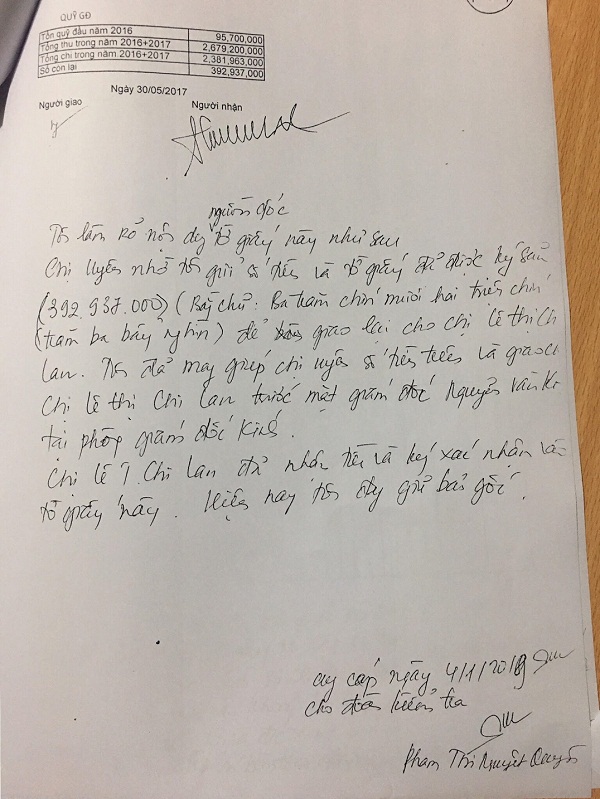 QUỸ GĐ
Tồn quỹ đầu năm 2016 95,700,000
Tổng thu trong năm 2016+2017 2,679,200,000
Tổng chi trong năm 2016+2017 2,381,963,000
Số còn lại 392,937,000
Ngày 30/05/2017
Người giao Người nhận
nguồn gốc
Tôi làm rõ nội dung tờ giấy này như sau
Chị Uyên nhờ tôi gửi số tiền và tờ giấy đã được ký sẵn
(392.937.000) (Bằng chữ: Ba trăm chín mươi hai triệu chín
trăm ba bảy nghìn) để giao lại cho chị lê thị Ch
lan. Tôi đã giúp chị uyên số tiền trên và giao
Chị lê thị Chi lan trước mặt giám đốc Nguyễn Văn K
tại phòng giám đốc Kính.
Chị lê T. Chi lan đã nhận tiền và ký xác nhận và
tờ giấy này. Hiện nay tôi đang giữ bản gốc.
cung cấp ngày 4/1/2018
cho đoàn kiểm tra
Phạm Thị Nguyệt Quyên